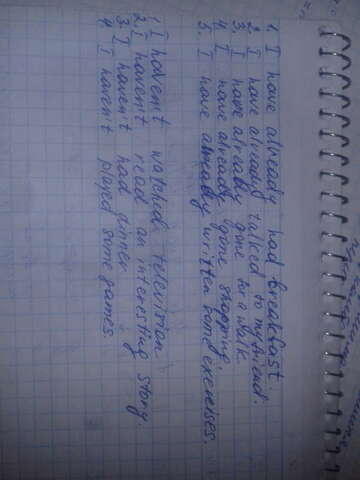 1. I have already had breakfast
2. I have already talked to my friend.
3. I have already gone for a walk.
4. I have already gone shopping.
5. I have already written some exercises.
1. I haven't watched television
2. I haven't read an interesting story
3. I haven't had dinner
4. I haven't played some games.